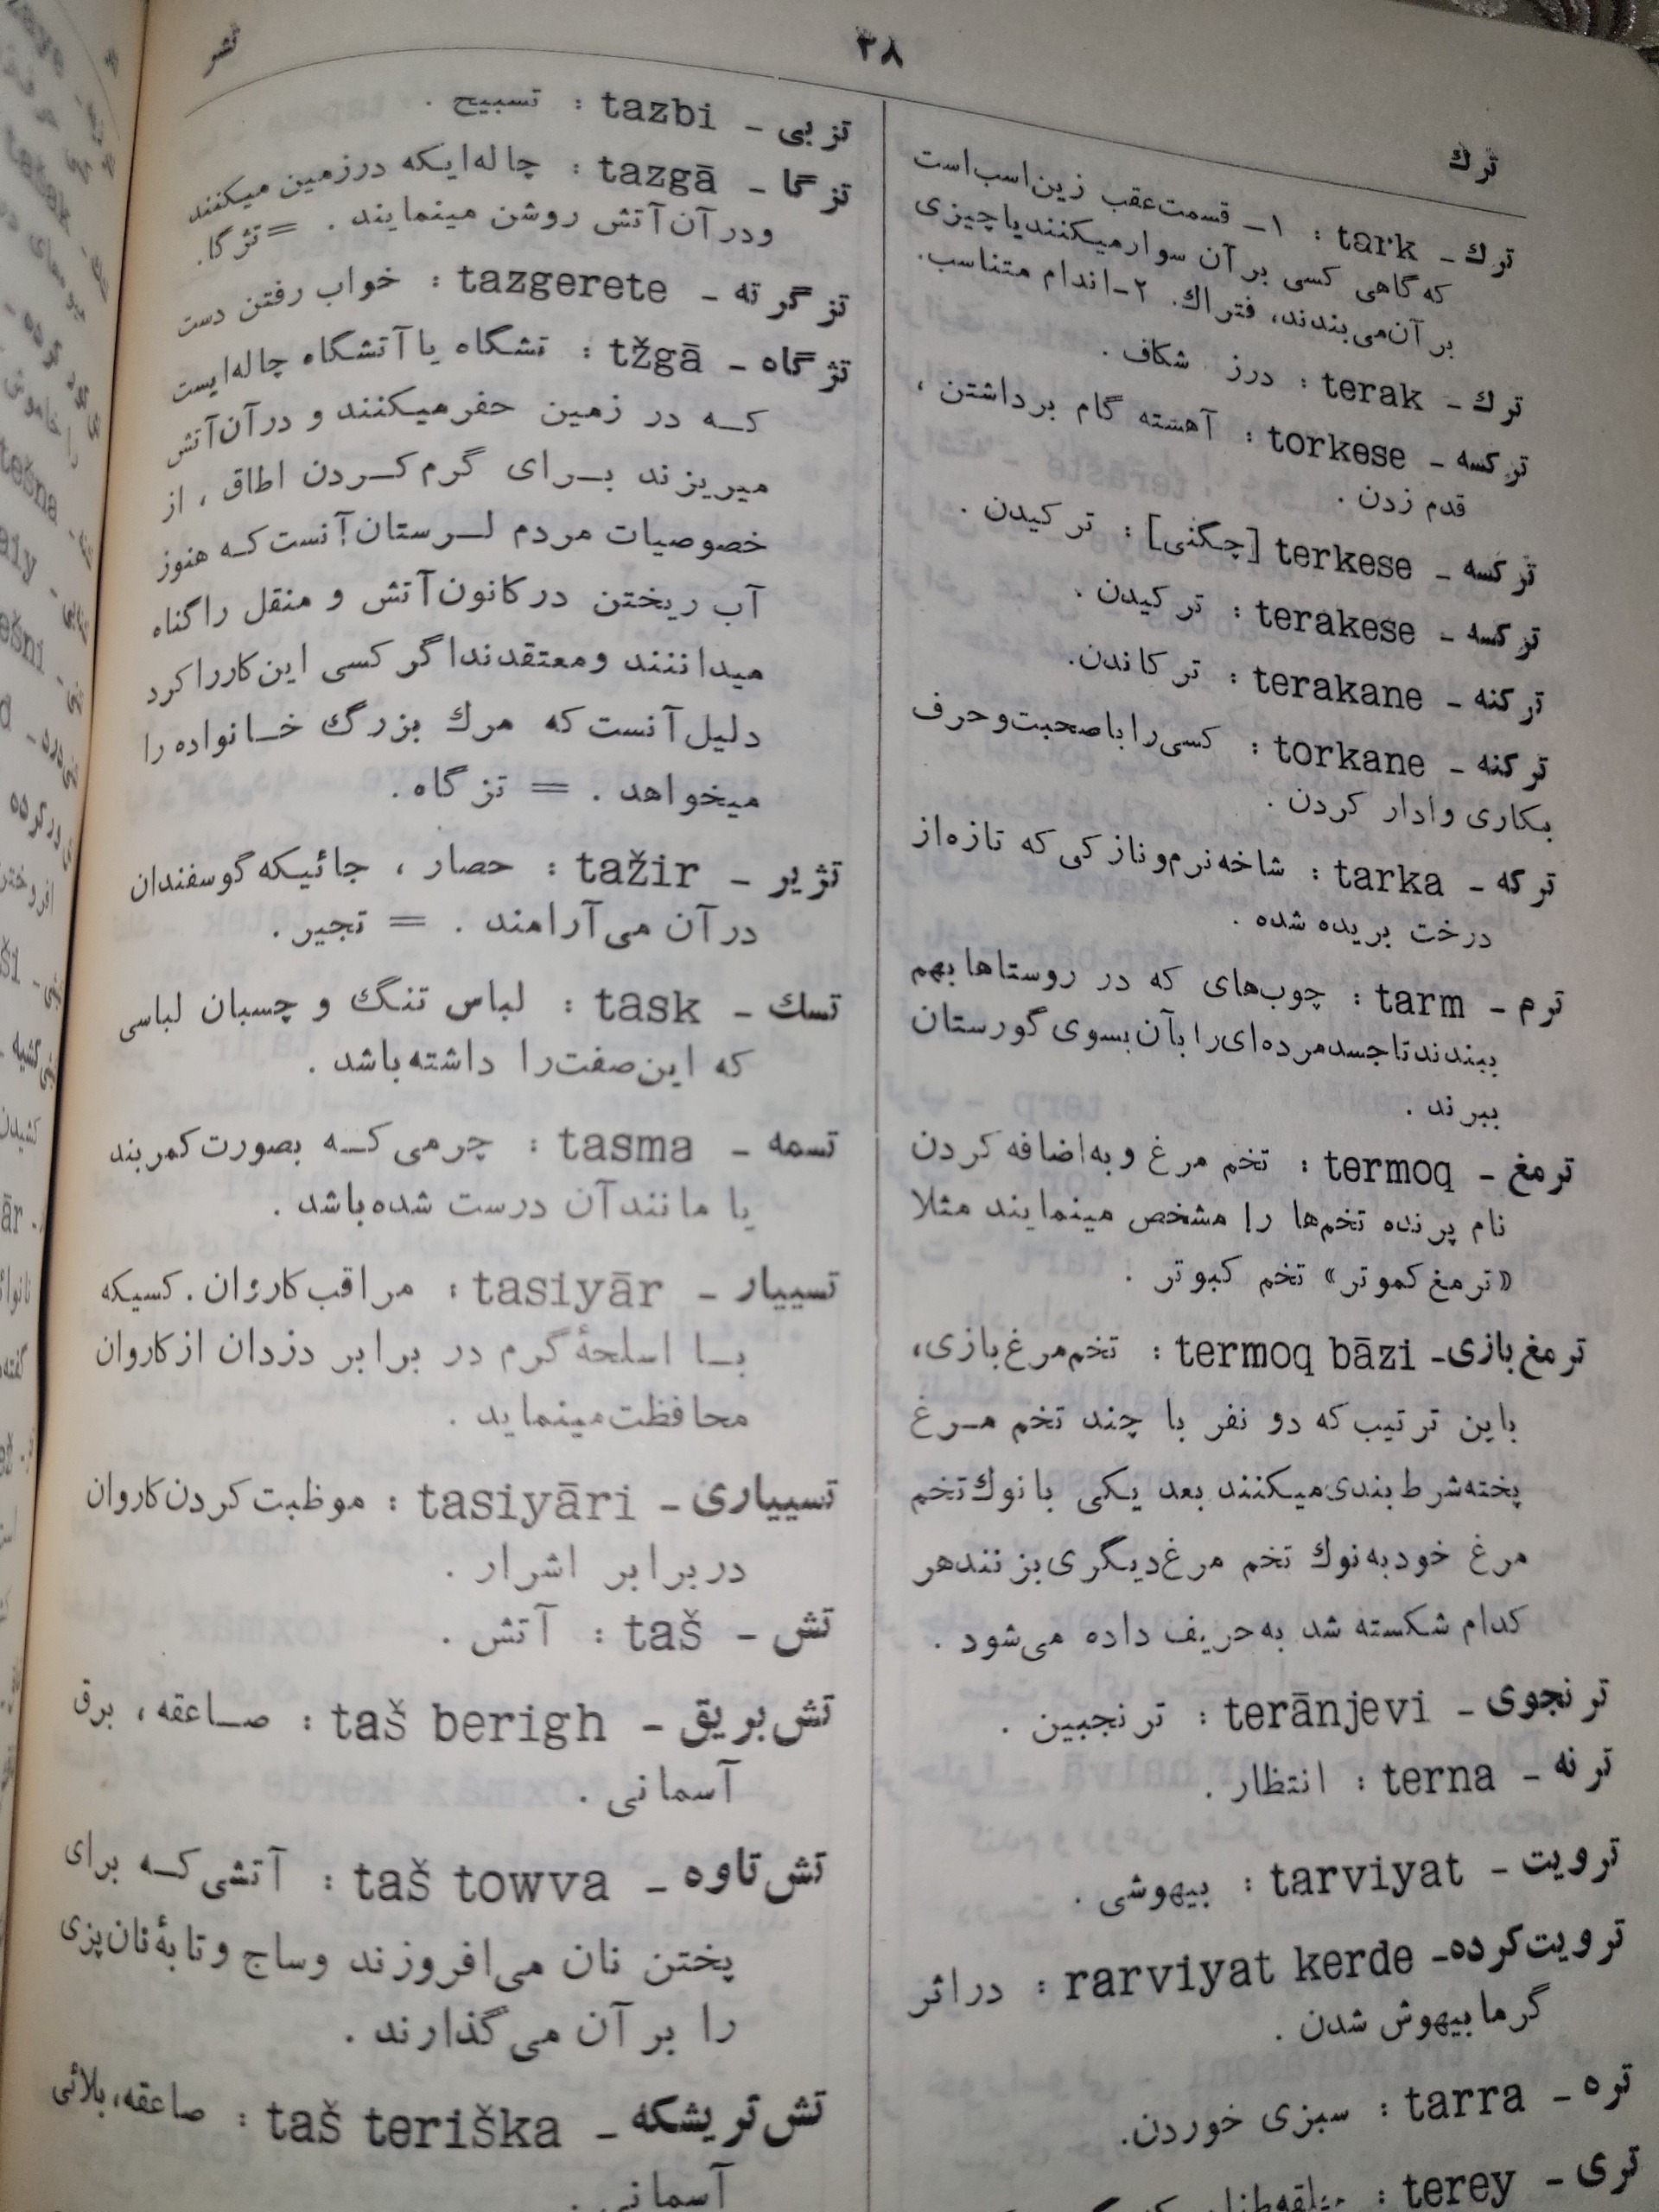 ترك
۳۸
تشر
ترك ـ tark : ۱ـ قسمت‌عقب زین‌اسب‌است
که گاهی کسی بر آن سوار میکنند یا چیزی
بر آن‌می‌بندند، فتراك. ۲ـ اندام متناسب.
ترك ـ terak : درز شکاف .
ترکسه ـ torkese : آهسته گام برداشتن ،
قدم زدن .
ترکسه ـ terkese [چگنی] : ترکیدن .
ترکسه ـ terakese : ترکیدن .
ترکنه ـ terakane : ترکاندن.
ترکنه ـ torkane : کسی‌را با صحبت‌و حرف
بکاری وادار کردن .
ترکه ـ tarka : شاخه‌نرم‌و نازکی که تازه‌از
درخت بریده شده .
ترم ـ tarm : چوب‌های که در روستاها بهم
ببندند تا جسد مرده‌ای را بآن بسوی گورستان
ببرند .
ترمغ ـ termoq : تخم مرغ و به‌اضافه کردن
نام پرنده تخم‌ها را مشخص مینمایند مثلا
«ترمغ کموتر» تخم کبوتر .
ترمغ‌بازی‌ـ termoq bāzi : تخم‌مرغ‌بازی،
باین ترتیب‌که دو نفر با چند تخم مـرغ
پخته‌شرط بندی‌میکنند بعد یکی با نوك‌تخم
مرغ خود به نوك تخم مرغ‌دیگری‌بزنند هر
کدام شکسته شد به‌حریف داده می‌شود .
ترنجوی ـ terānjevi : ترنجبین .
ترنه ـ terna : انتظار .
ترویت ـ tarviyat : بیهوشی .
ترویت‌کرده‌ـ rarviyat kerde : در اثر
گرما بیهوش شدن .
تره ـ tarra : سبزی خوردن.
تری ـ terey :
تزبی ـ tazbi : تسبیح .
تزگا ـ tazgā : چاله‌ایکه درزمین میکنند
و در آن آتش روشن مینمایند . = تژگا.
تزگرته ـ tazgerete : خواب رفتن دست
تژگاه ـ tžgā : تشگاه یا آتشگاه چاله‌ایست
کـه در زمین حفر میکنند و در آن آتش
میریزند بـرای گرم کـردن اطاق ، از
خصوصیات مردم لـرستان آنست کـه هنوز
آب ریختن در کانون آتش و منقل را گناه
میدانند و معتقدند اگر کسی این کار را کرد
دلیل آنست که مرك بزرگ خـانواده را
میخواهد . = تزگاه .
تژیر ـ tažir : حصار ، جائیکه گوسفندان
در آن می‌آرامند . = تجیر .
تسك ـ task : لباس تنگ و چسبان لباسی
که این‌صفت‌را داشته‌باشد .
تسمه ـ tasma : چرمی کـه بصورت کمربند
یا مانند آن درست شده‌باشد .
تسییار ـ tasiyār : مراقب‌کاروان . کسیکه
بـا اسلحهٔ گرم در برابر دزدان از کاروان
محافظت‌مینماید .
تسییاری ـ tasiyāri : موظبت کردن‌کاروان
در برابر اشرار .
تش ـ taš : آتش .
تش‌بریق ـ taš berigh : صـاعقه ، برق
آسمانی .
تش‌تاوه ـ taš towva : آتشی کـه برای
پختن نان می‌افروزند و ساج و تابهٔ نان‌پزی
را بر آن می‌گذارند .
تش‌تریشکه ـ taš teriška : صاعقه، بلائی
آسمانی .